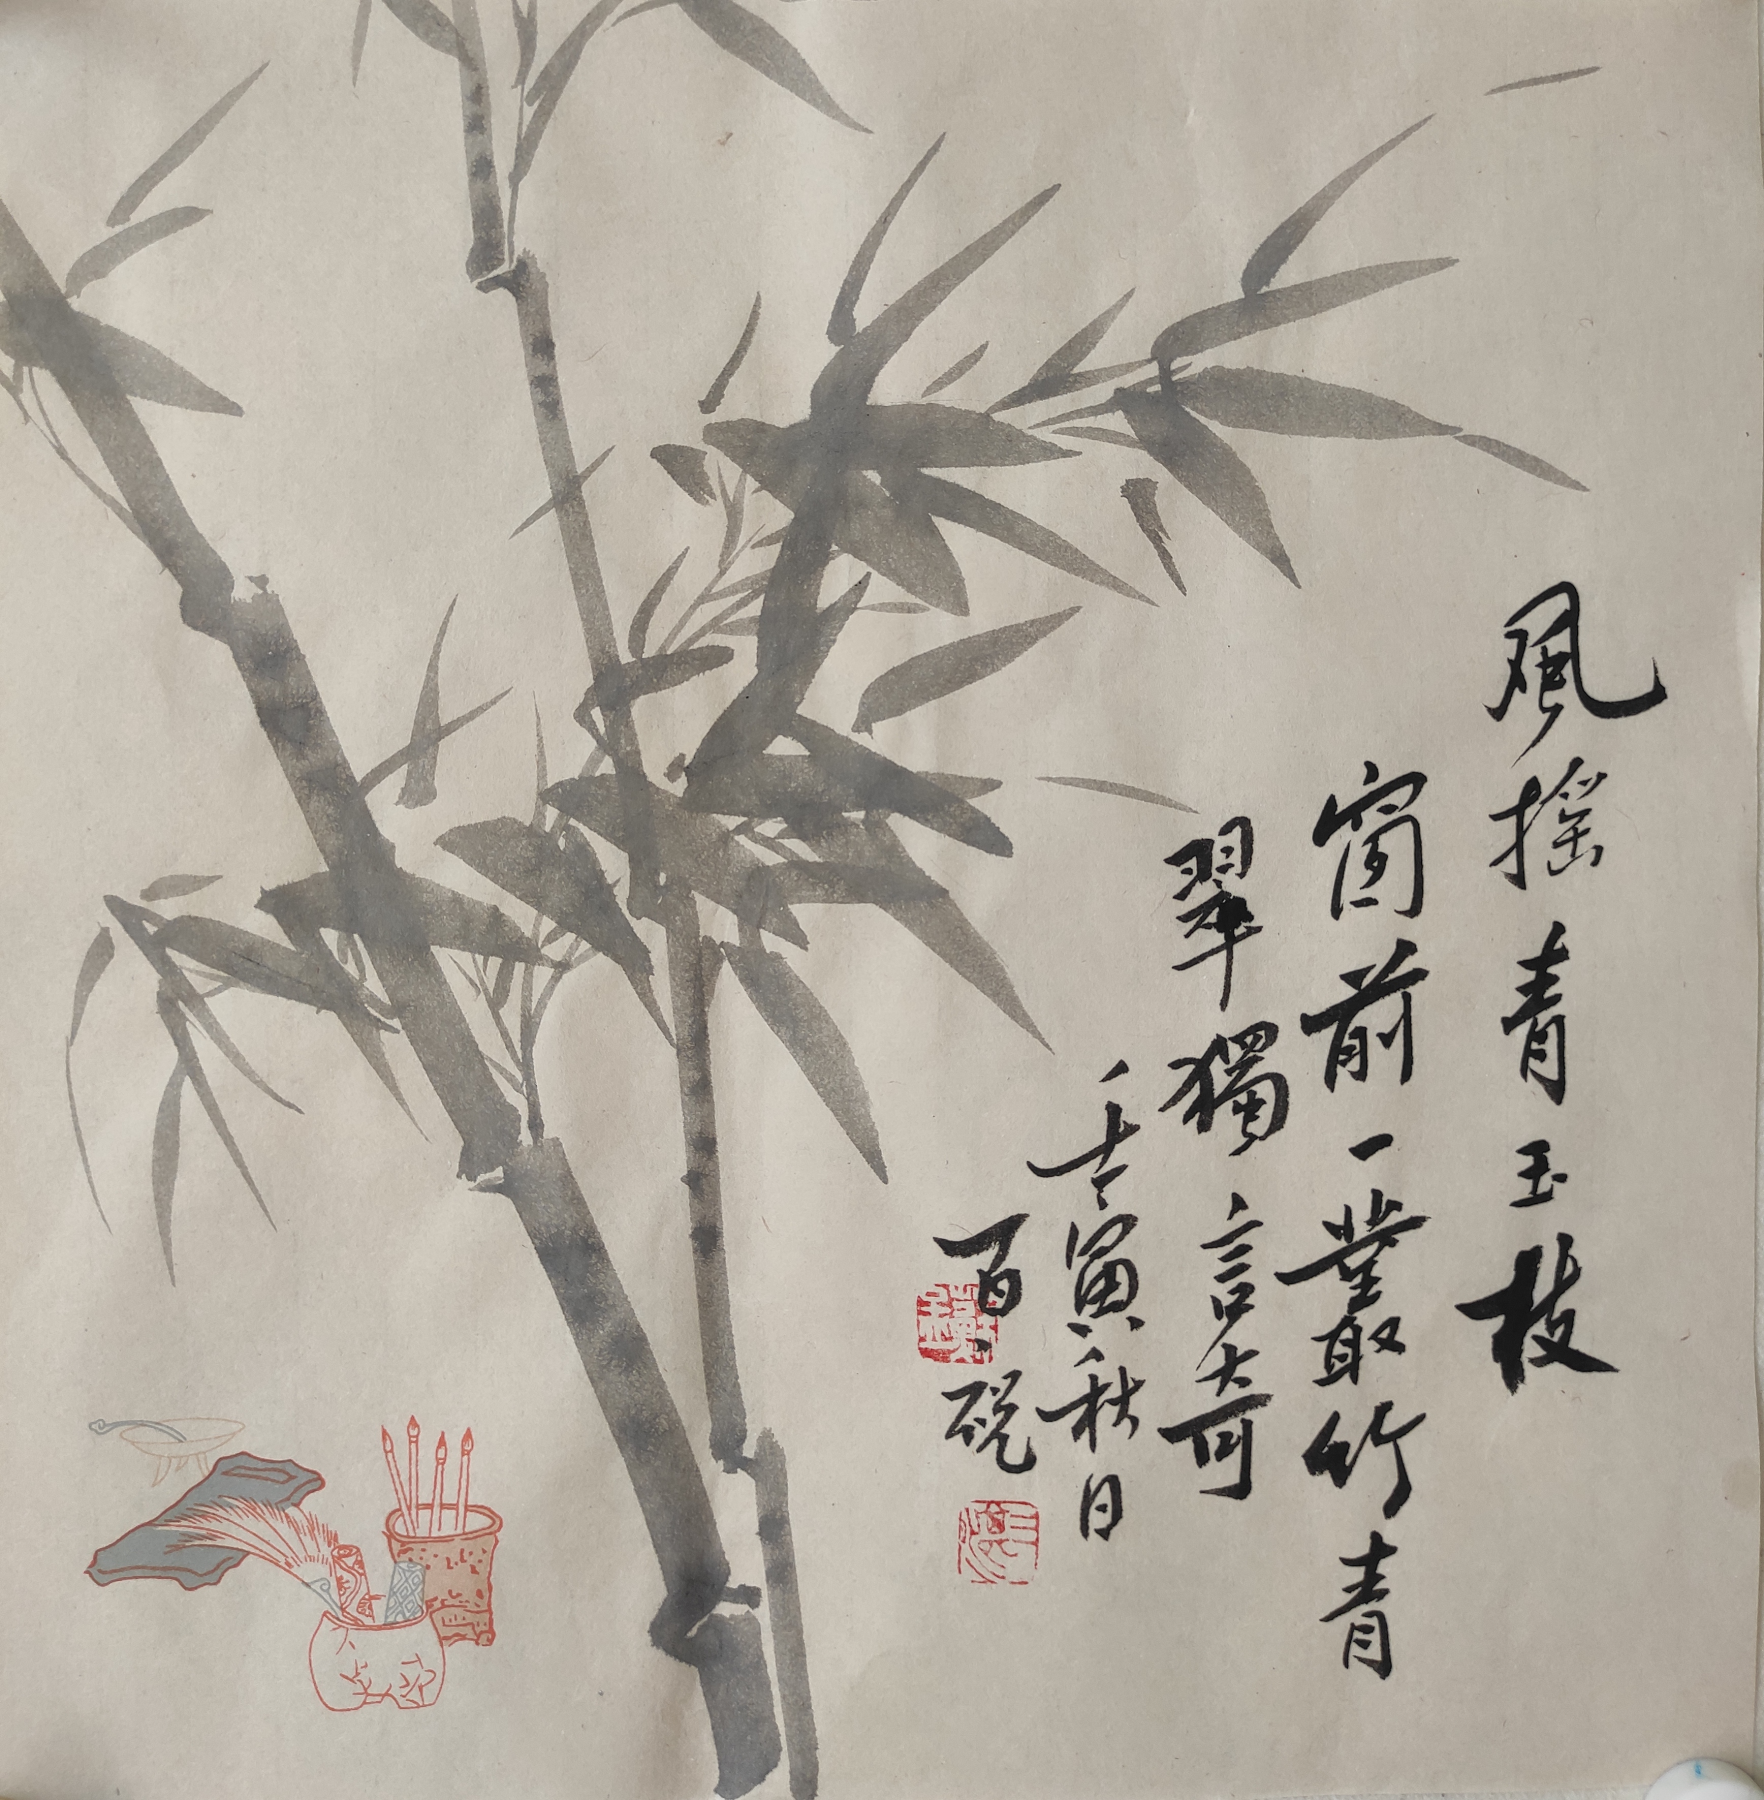 風摇青玉枝
窗前一叢竹青
翠獨言奇
壬寅秋日
百硯